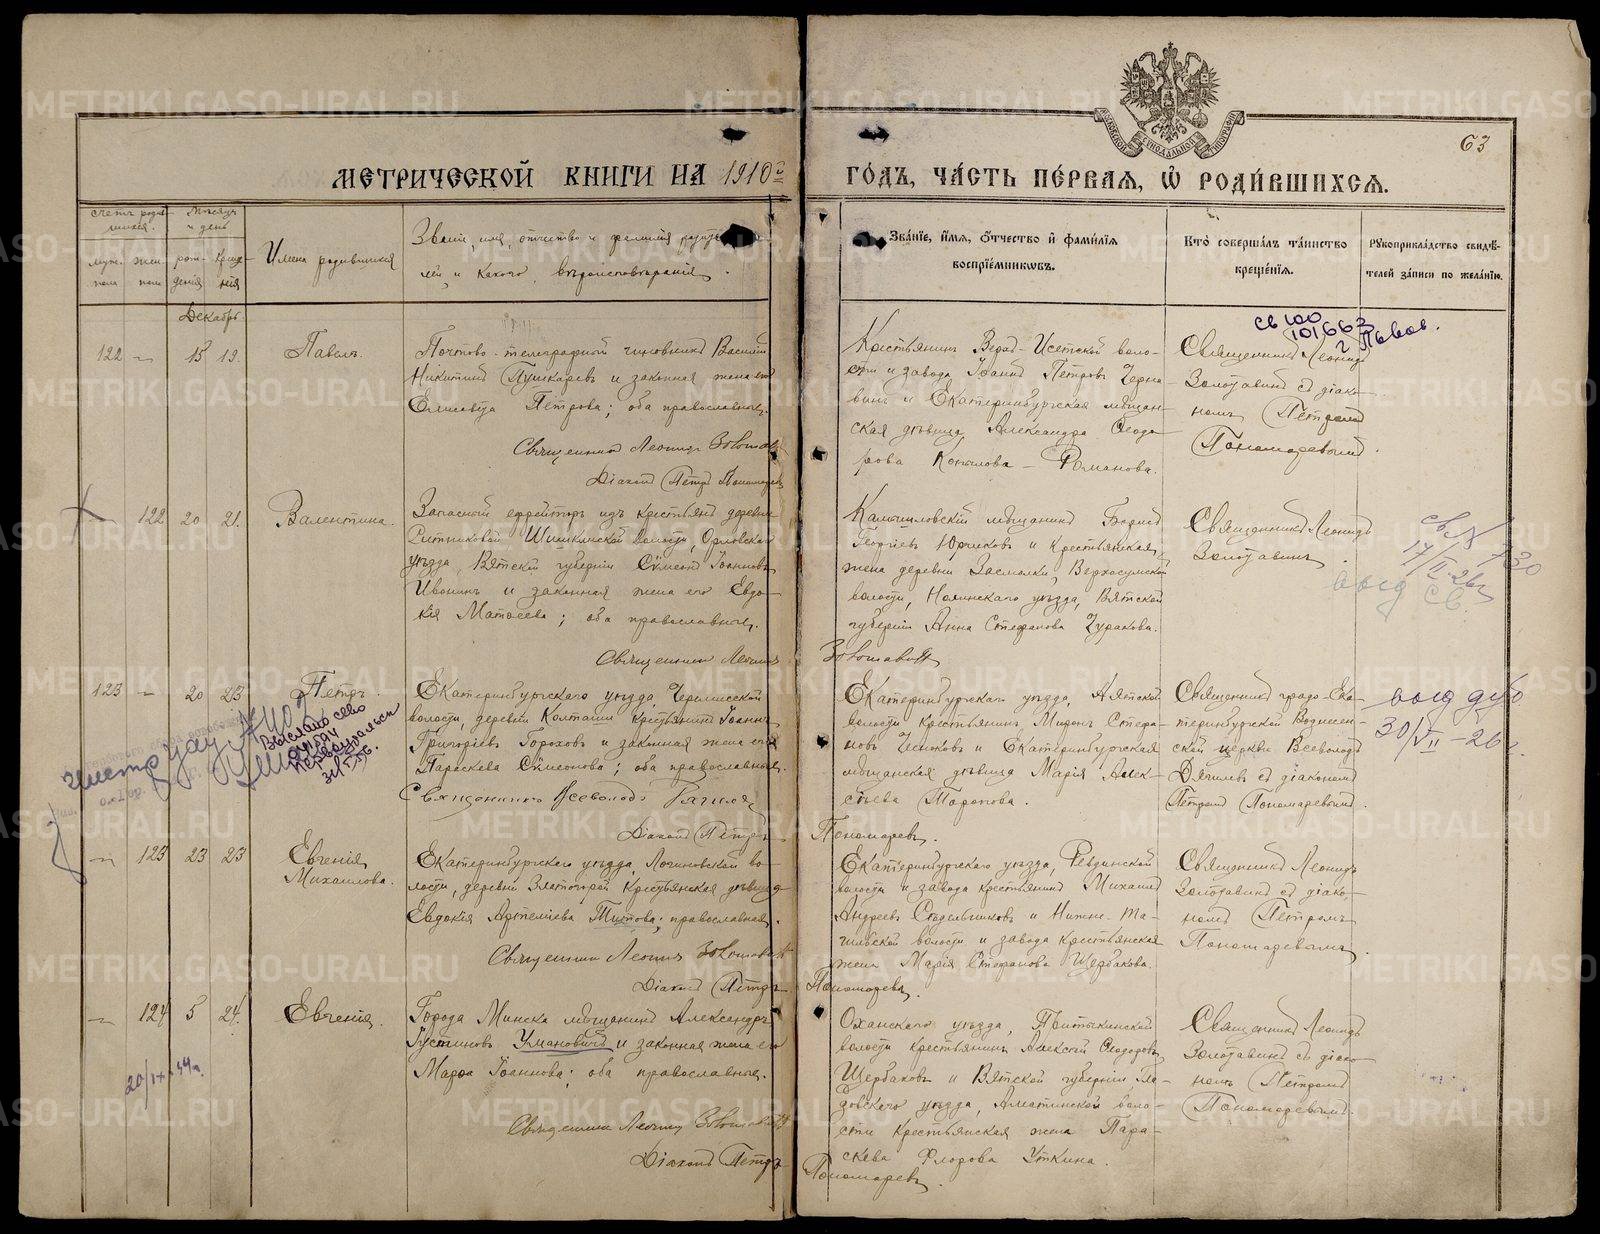 63
МЕТРИЧЕСКОЙ КНИГИ НА 1910й
ГОДЪ, ЧАСТЬ ПЕРВАЯ, Ѿ РОДИВШИХСЯ.
Счетъ роди-
вшихся.
Мѣсяцъ
и день
муж.
пола
жен.
пола
рож-
денія
креще-
нія
Имена родившихся
Званіе, имя, отчество и фамилія
и какого вѣроисповѣданія.
Званіе, имя, отчество и фамилія
воспріемниковъ.
Кто совершалъ таинство
крещенія.
Рукоприкладство свидѣ-
телей записи по желанію.
Декабрь
122 15 19.
Павелъ.
Почтово-телеграфный чиновникъ Василій
Никитинъ Пушкаревъ и законная жена его
Елисавета Петрова; оба православные.
Священникъ Леонидъ
Діаконъ Петръ
Крестьянинъ Верхъ-Исетской воло-
сти и завода Іоаннъ Петровъ Черна-
винъ и Екатеринбургская мѣщан-
ская дѣвица Александра Ѳеодо-
рова Копылова-Романова.
Священникъ Леонидъ
Золотавинъ съ діако-
номъ Петромъ
Пономаревымъ.
122 20 21.
Валентина.
Запасный ефрейторъ изъ крестьянъ деревни
волости, Орловскаго
уѣзда, Вятской губерніи Сѵмеонъ Іоанновъ
Ивонинъ и законная жена его Евдо-
кія Матѳеева; оба православные.
Священникъ Леонидъ
Золотавинъ
Камышловскій мѣщанинъ Борисъ
Георгіевъ Юрчиковъ и крестьянская
жена деревни Засмалки, Верхосунской
волости, Нолинскаго уѣзда, Вятской
губерніи Анна Стефанова Чуракова.
Священникъ Леонидъ
Золотавинъ.
св № 730
17/II-26г
выд св.
123 20 23
Петръ.
Екатеринбургскаго уѣзда, Черемисской
волости, деревни Колташи крестьянинъ Іоаннъ
Григоріевъ Гороховъ и законная жена его
Параскева Сѵмеонова; оба православные.
Священникъ Всеволодъ
Діаконъ Петръ
Пономаревъ.
Екатеринбургскаго уѣзда, Аятской
волости крестьянинъ Миронъ Стефа-
новъ Чесноковъ и Екатеринбургская
мѣщанская дѣвица Марія Алек-
сѣева Торопова.
Священникъ градо-Ека-
теринбургской Вознесен-
ской церкви Всеволодъ
съ діакономъ
Петромъ Пономаревымъ.
выд
30/VII-26г.
Выслано
Первоуральск
123 23 23
Евгенія
Михаилова.
Екатеринбургскаго уѣзда, Логиновской во-
лости, деревни Златогоры крестьянская дѣвица
Евдокія Артеміева Титова; православная.
Священникъ Леонидъ Золотавинъ
Діаконъ Петръ
Пономаревъ.
Екатеринбургскаго уѣзда, Ревдинской
волости и завода крестьянинъ Михаилъ
Андреевъ Сѣдельниковъ и Нижне-Та-
гильской волости и завода крестьянская
жена Марія Стефанова Щербакова.
Священникъ Леонидъ
Золотавинъ съ діако-
номъ Петромъ
Пономаревымъ.
124 5 24.
Евгенія.
Города Минска мѣщанинъ Александръ
Іустиновъ Умановичъ и законная жена его
Марѳа Іоаннова; оба православные.
Священникъ Леонидъ Золотавинъ
Діаконъ Петръ
Пономаревъ.
Оханскаго уѣзда, Притыкинской
волости крестьянинъ Алексѣй Ѳеодоровъ
Щербаковъ и Вятской губерніи Гла-
зовскаго уѣзда, воло-
сти крестьянская жена Пара-
скева Флорова Уткина.
Священникъ Леонидъ
Золотавинъ съ діако-
номъ Петромъ
Пономаревымъ.
20/IX-44г.
METRIKI.GASO-URAL.RU